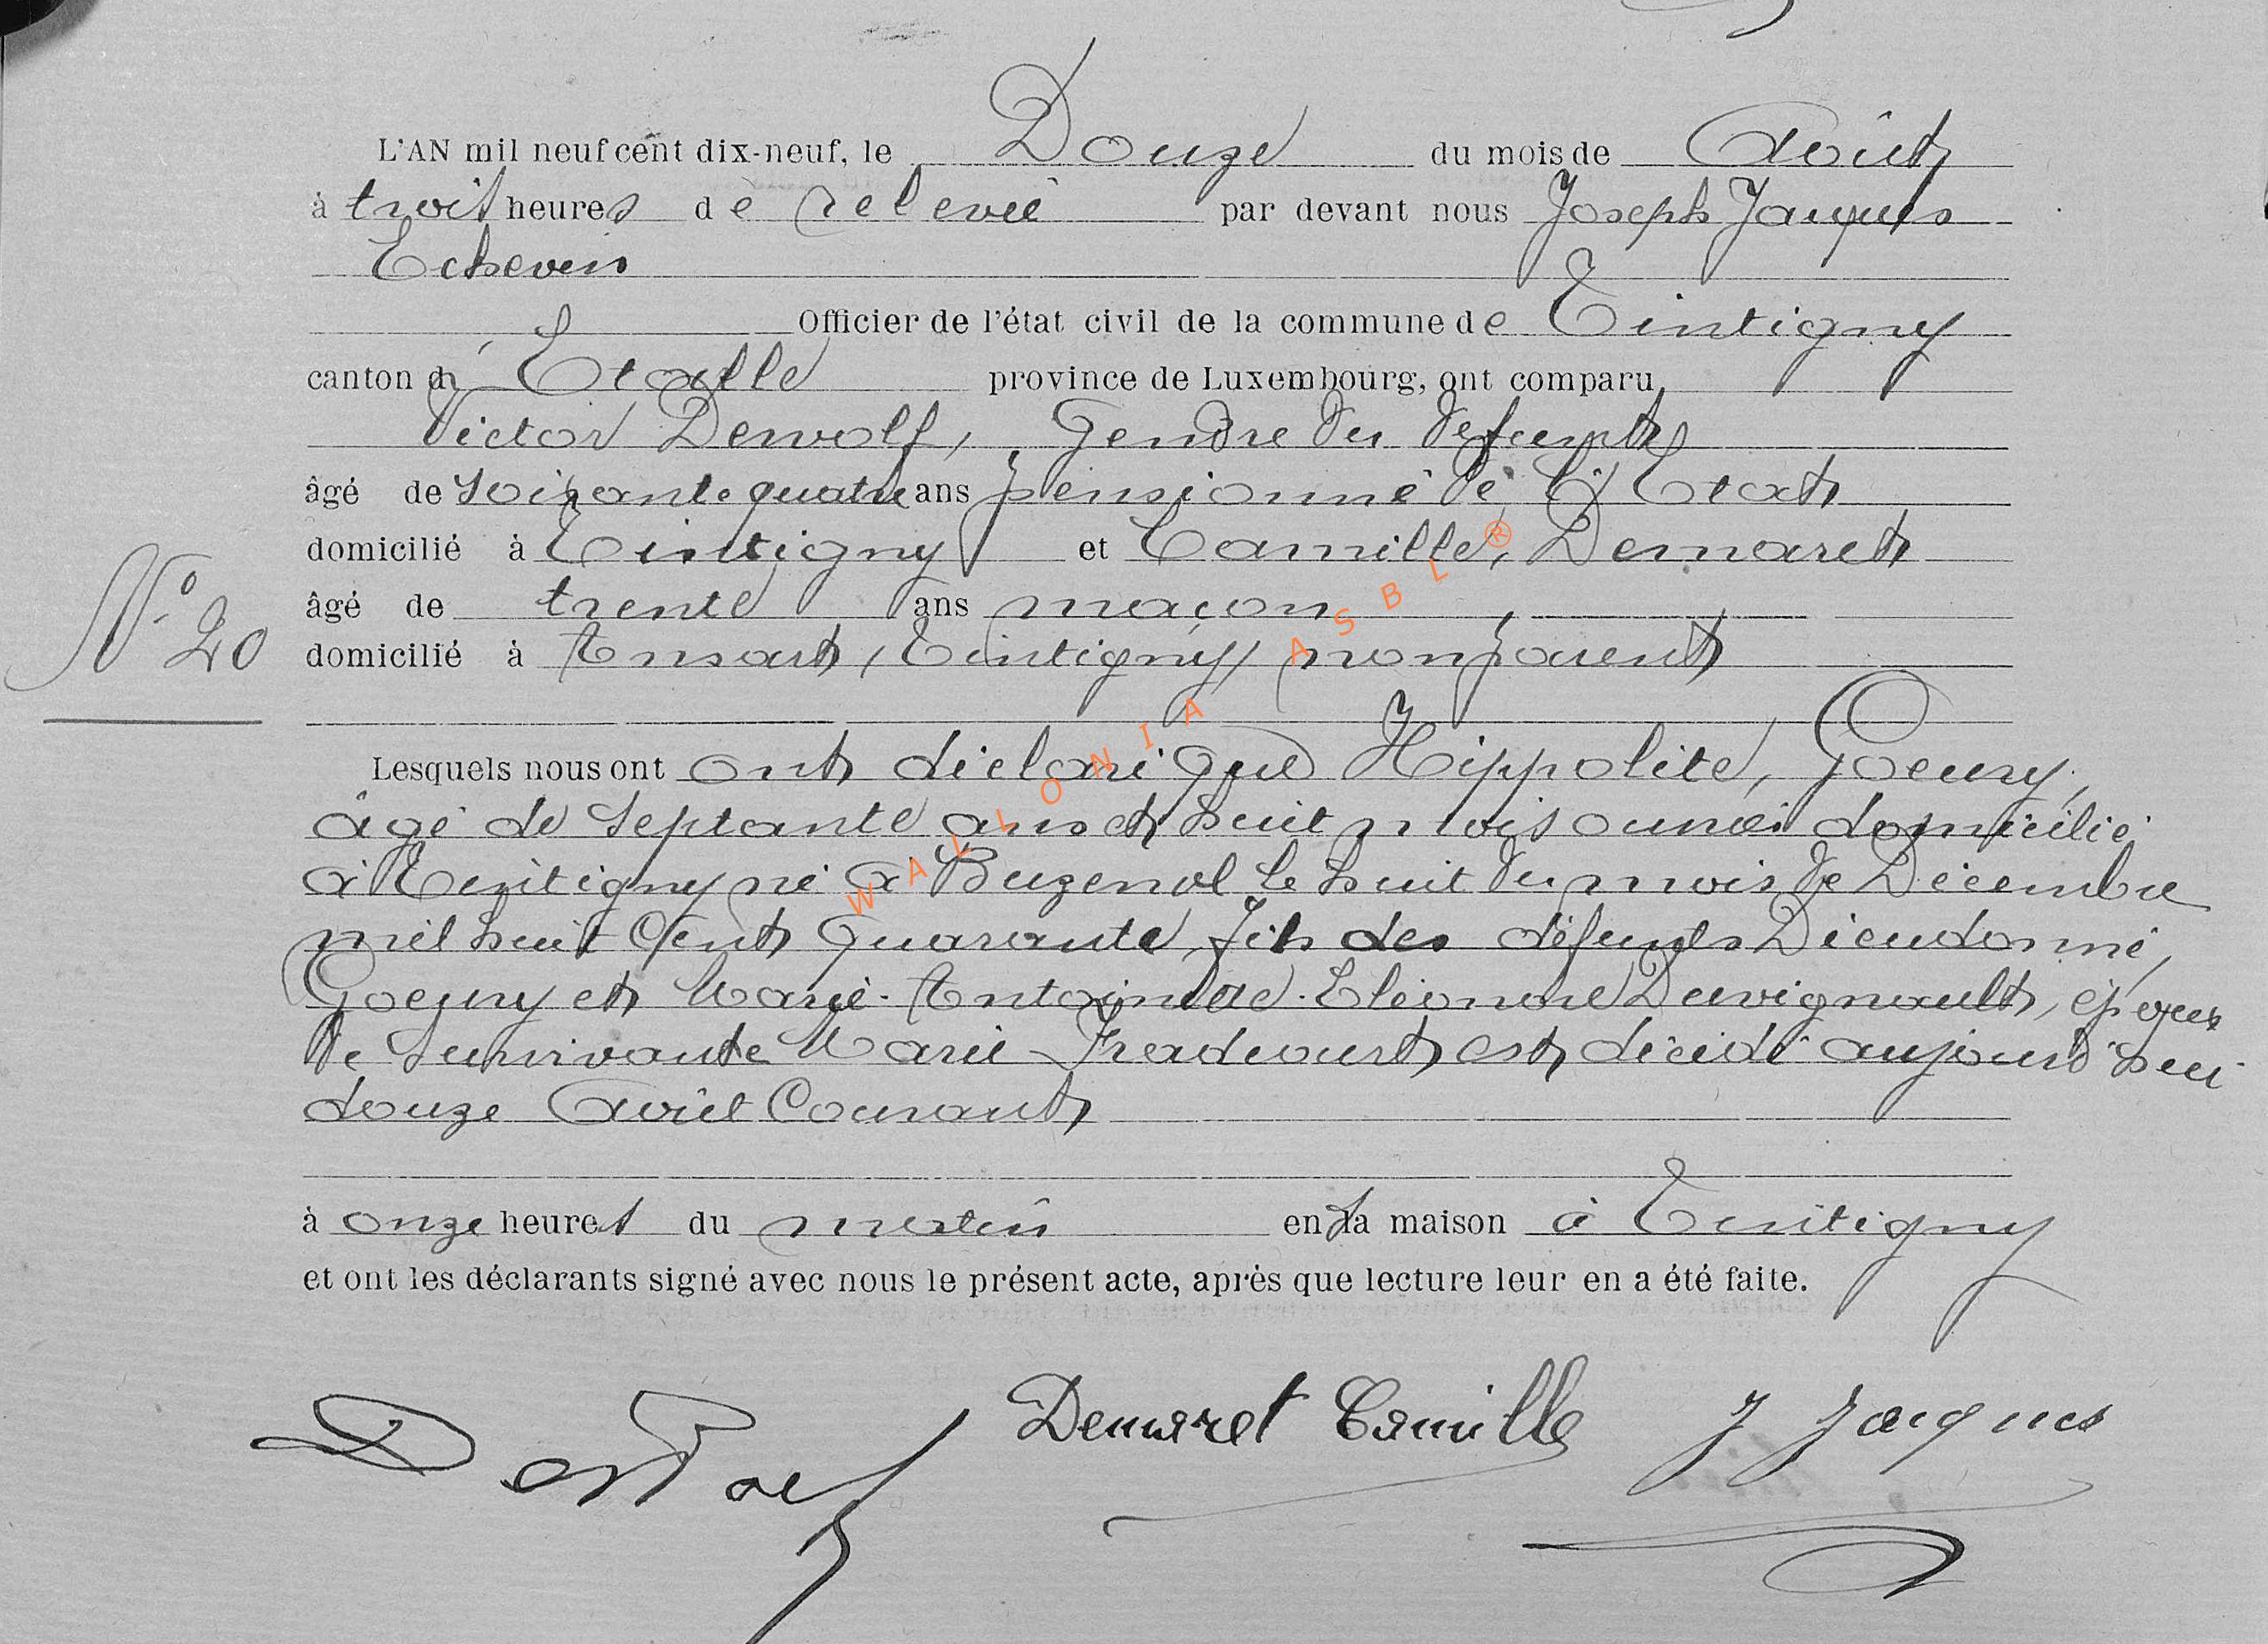 L'AN mil neuf cent dix-neuf, le Douze du mois de Août
à trois heures de relevée par devant nous Joseph Jacques
Echevin
Officier de l'état civil de la commune de Tintigny
canton d' Etalle province de Luxembourg, ont comparu
Victor Dewolf, Gendre du defunt
âgé de soixante quatre ans pensionné de l'Etat
domicilié à Tintigny et Camille, Demaret
âgé de trente ans maçon,
domicilié à Ansart, (Tintigny) non parent
N° 20
Lesquels nous ont ont déclaré que Hippolite, Goeury,
âgé de septante ans et huit mois domicilié
à Tintigny né à Buzenol le huit du mois de Décembre
mil huit Cent Quarante, fils des défunts Dieudonné,
Goeury et Marie-Antoinette-Eléonore Duvignault, époux
de survivante Marie Fradcourt est décédé aujourd'hui
douze Avril Courant
à onze heures du matin en sa maison à Tintigny
et ont les déclarants signé avec nous le présent acte, après que lecture leur en a été faite.
Demaret Camille J Jacques
WALLONIA ASBL ®